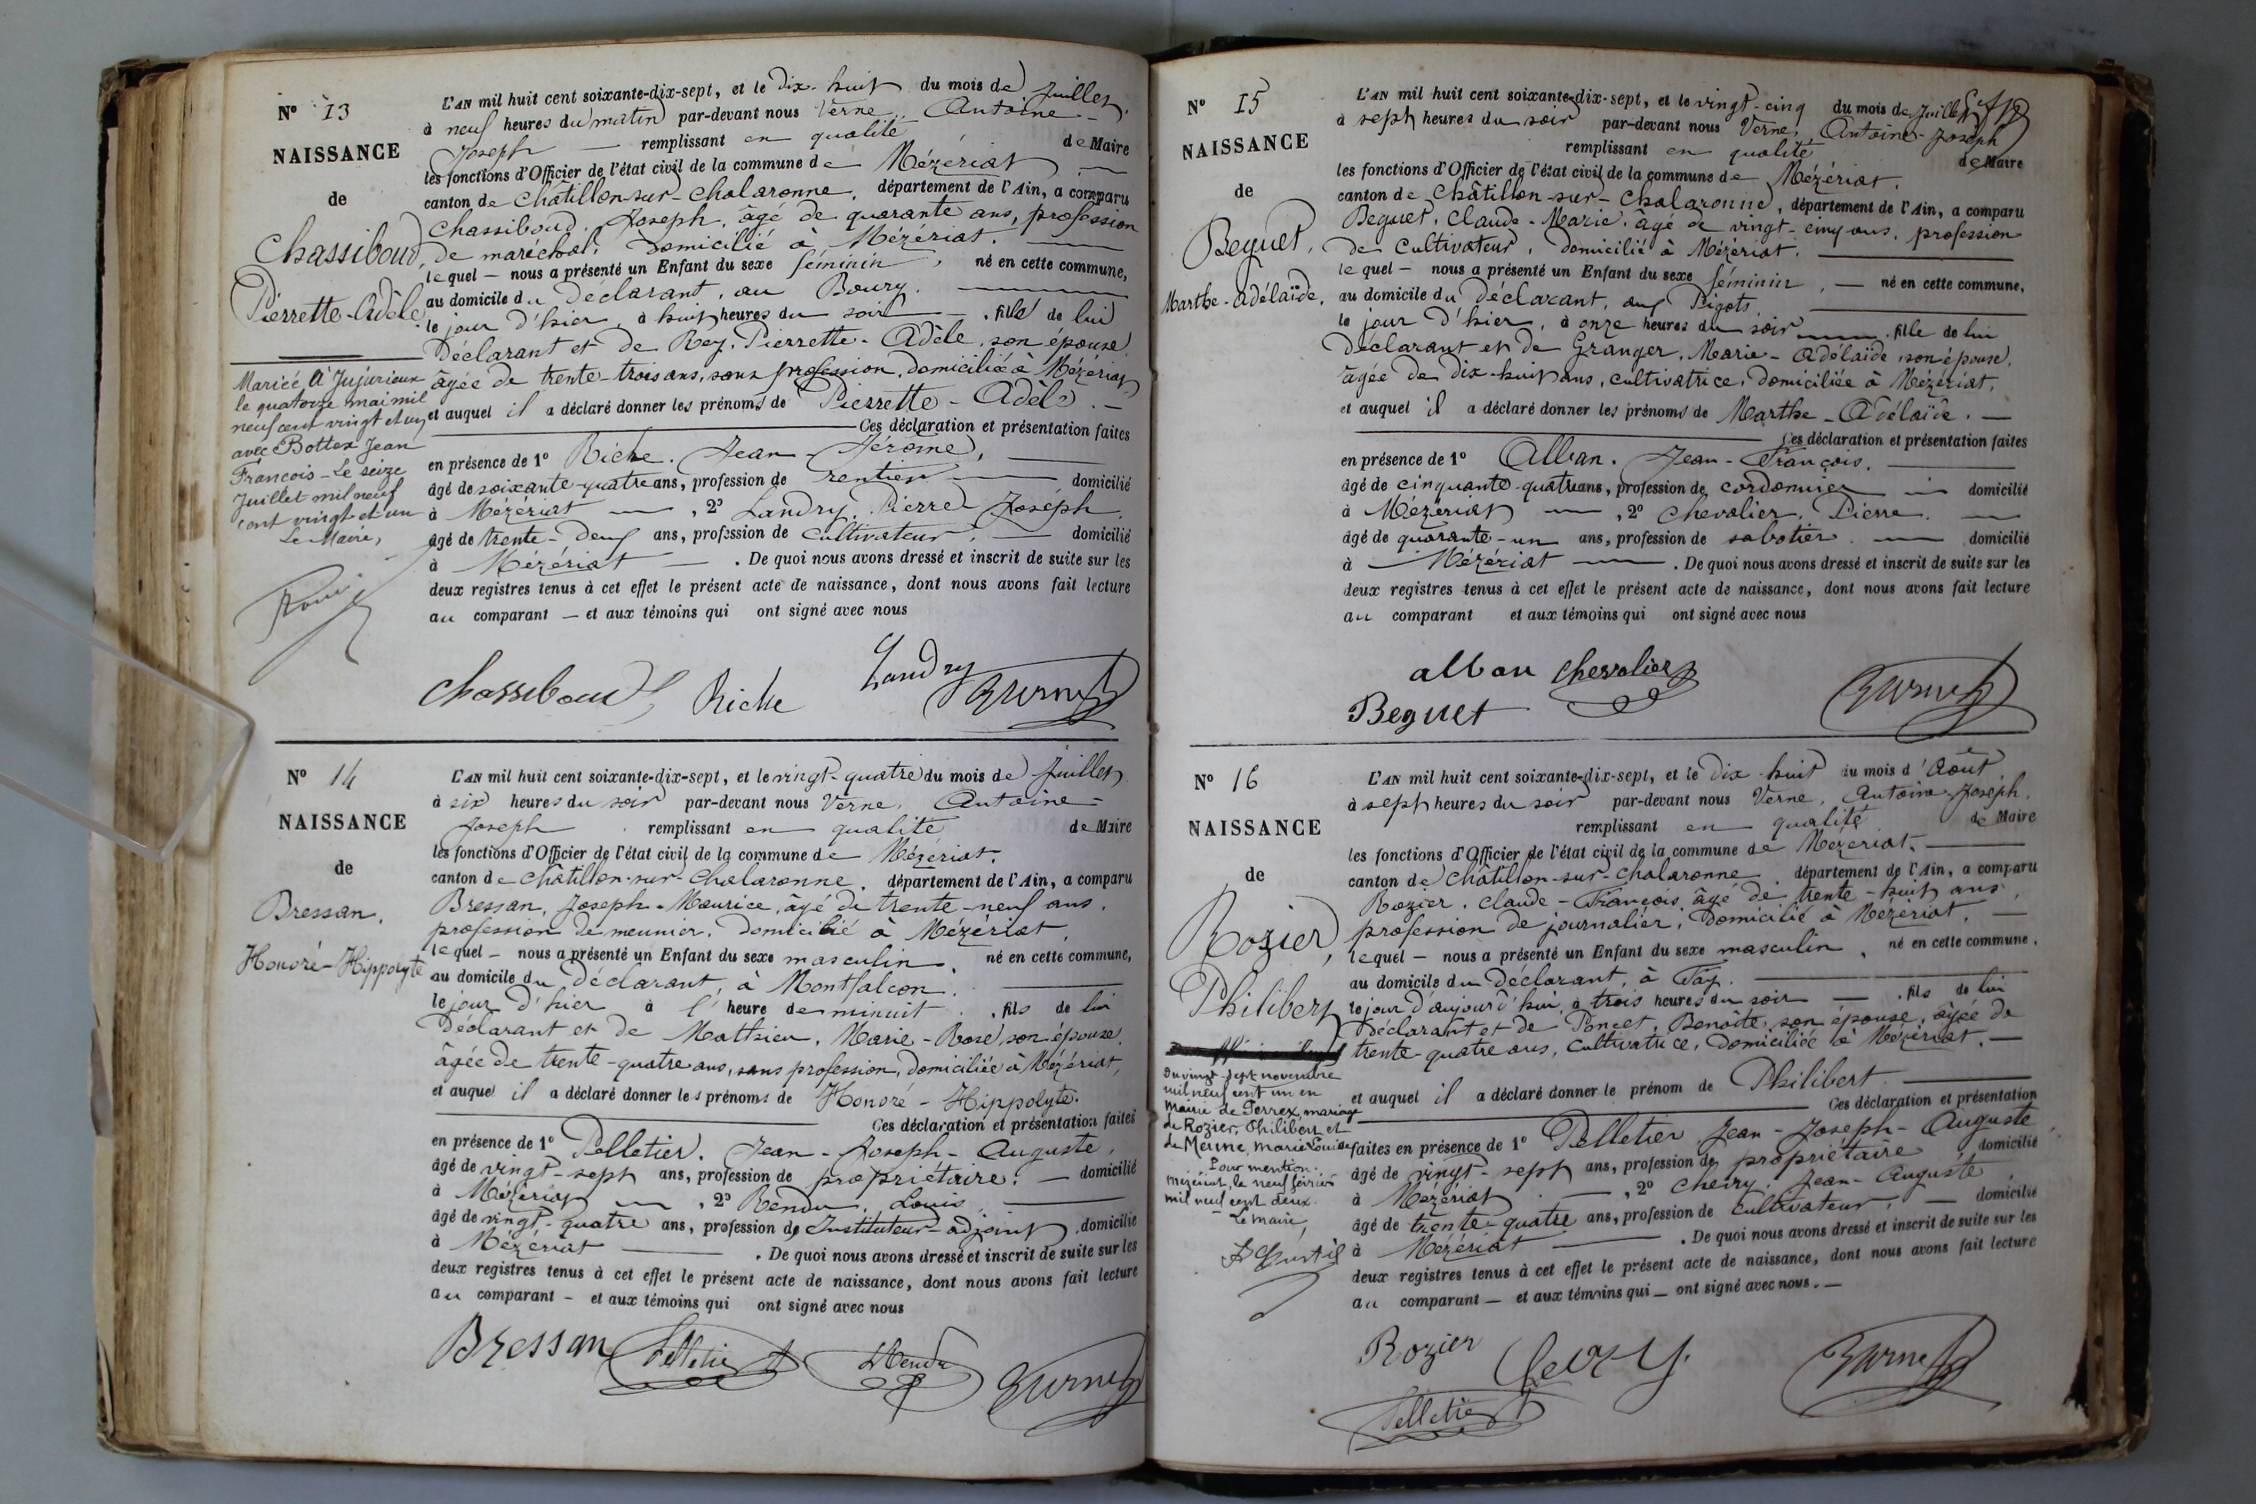 N° 13
NAISSANCE
de
Chassiboud,
Pierrette-Adèle
Mariée à Jujurieux
le quatorze mai mil
neuf cent vingt et un
avec Bottex Jean
François - Le seize
Juillet mil neuf
cent vingt et un
Le Maire,
L'AN mil huit cent soixante-dix-sept, et le dix-huit du mois de Juillet,
à neuf heures du matin par-devant nous Verne, Antoine-
Joseph — remplissant en qualité de Maire
les fonctions d'Officier de l'état civil de la commune de Mézériat —
canton de Châtillon-sur-Chalaronne, département de l'Ain, a comparu
Chassiboud, Joseph, âgé de quarante ans, profession
de maréchal, domicilié à Mézériat. —
lequel — nous a présenté un Enfant du sexe féminin, né en cette commune,
au domicile du Déclarant, au Bourg. —
le jour d'hier, à huit heures du soir — , fille de lui
Déclarant et de Rey, Pierrette-Adèle, son épouse,
âgée de trente-trois ans, sans profession, domiciliée à Mézériat,
et auquel il a déclaré donner les prénoms de Pierrette-Adèle. —
— Ces déclaration et présentation faites
en présence de 1° Riche, Jean-Jérôme, —
âgé de soixante-quatre ans, profession de rentier — domicilié
à Mézériat — , 2° Landry, Pierre Joseph,
âgé de trente-deux ans, profession de cultivateur, — domicilié
à Mézériat — . De quoi nous avons dressé et inscrit de suite sur les
deux registres tenus à cet effet le présent acte de naissance, dont nous avons fait lecture
au comparant — et aux témoins qui ont signé avec nous
Landry
Chassiboud Riche Verne
N° 14
NAISSANCE
de
Bressan,
Honoré-Hippolyte
L'AN mil huit cent soixante-dix-sept, et le vingt-quatre du mois de Juillet,
à six heures du soir par-devant nous Verne, Antoine-
Joseph remplissant en qualité de Maire
les fonctions d'Officier de l'état civil de la commune de Mézériat,
canton de Châtillon-sur-Chalaronne, département de l'Ain, a comparu
Bressan, Joseph-Maurice, âgé de trente-neuf ans,
profession de meunier, domicilié à Mézériat,
lequel — nous a présenté un Enfant du sexe masculin, né en cette commune,
au domicile du Déclarant, à Montfalcon. —
le jour d'hier à l'heure de minuit , fils de lui
Déclarant et de Mathieu, Marie-Rose, son épouse,
âgée de trente-quatre ans, sans profession, domiciliée à Mézériat,
et auquel il a déclaré donner les prénoms de Honoré-Hippolyte.
— Ces déclaration et présentation faites
en présence de 1° Pelletier, Jean-Joseph-Auguste,
âgé de vingt-sept ans, profession de propriétaire, — domicilié
à Mézériat — , 2° Rendu, Louis —
âgé de vingt-quatre ans, profession de Instituteur-adjoint, domicilié
à Mézériat — . De quoi nous avons dressé et inscrit de suite sur les
deux registres tenus à cet effet le présent acte de naissance, dont nous avons fait lecture
au comparant — et aux témoins qui ont signé avec nous
Bressan Pelletier Rendu Verne
N° 15
NAISSANCE
de
Beguet,
Marthe-Adélaïde.
L'AN mil huit cent soixante-dix-sept, et le vingt-cinq du mois de Juillet
à sept heures du soir par-devant nous Verne, Antoine-Joseph
remplissant en qualité de Maire
les fonctions d'Officier de l'état civil de la commune de Mézériat.
canton de Châtillon-sur-Chalaronne, département de l'Ain, a comparu
Beguet, Claude-Marie, âgé de vingt-cinq ans, profession
de cultivateur, domicilié à Mézériat. —
lequel — nous a présenté un Enfant du sexe féminin, — né en cette commune,
au domicile du Déclarant, aux Pigots, —
le jour d'hier, à onze heures du soir — , fille de lui
Déclarant et de Granger, Marie-Adélaïde, son épouse,
âgée de dix-huit ans, cultivatrice, domiciliée à Mézériat,
et auquel il a déclaré donner les prénoms de Marthe-Adélaïde. —
— Ces déclaration et présentation faites
en présence de 1° Alban, Jean-François, —
âgé de cinquante-quatre ans, profession de cordonnier — domicilié
à Mézériat — , 2° Chevalier, Pierre. —
âgé de quarante-un ans, profession de sabotier. — domicilié
à — Mézériat — . De quoi nous avons dressé et inscrit de suite sur les
deux registres tenus à cet effet le présent acte de naissance, dont nous avons fait lecture
au comparant et aux témoins qui ont signé avec nous
alban chevalier
Beguet Verne
N° 16
NAISSANCE
de
Rozier,
Philibert
Du vingt-sept novembre
mil neuf cent un en
mairie de Perrex, mariage
de Rozier, Philibert et
de Meune, Marie Louise
Pour mention.
Mézériat, le neuf février
mil neuf cent deux.
Le maire,
L'AN mil huit cent soixante-dix-sept, et le dix-huit du mois d'Août
à sept heures du soir par-devant nous Verne, Antoine-Joseph,
remplissant en qualité de Maire
les fonctions d'Officier de l'état civil de la commune de Mézériat. —
canton de Châtillon-sur-Chalaronne, département de l'Ain, a comparu
Rozier, Claude-François, âgé de trente-huit ans,
profession de journalier, domicilié à Mézériat. —
lequel — nous a présenté un Enfant du sexe masculin, né en cette commune,
au domicile du Déclarant, à Fay. —
le jour d'aujourd'hui, à trois heures du soir — , fils de lui
Déclarant et de Poncet, Benoîte, son épouse, âgée de
trente-quatre ans, cultivatrice, domiciliée à Mézériat. —
et auquel il a déclaré donner le prénom de Philibert. —
— Ces déclaration et présentation
faites en présence de 1° Pelletier Jean-Joseph-Auguste
âgé de vingt-sept ans, profession de propriétaire, domicilié
à Mézériat. — , 2° Chevry, Jean-Auguste,
âgé de trente-quatre ans, profession de cultivateur, — domicilié
à Mézériat — . De quoi nous avons dressé et inscrit de suite sur les
deux registres tenus à cet effet le présent acte de naissance, dont nous avons fait lecture
au comparant — et aux témoins qui — ont signé avec nous. —
Rozier Verne
Pelletier